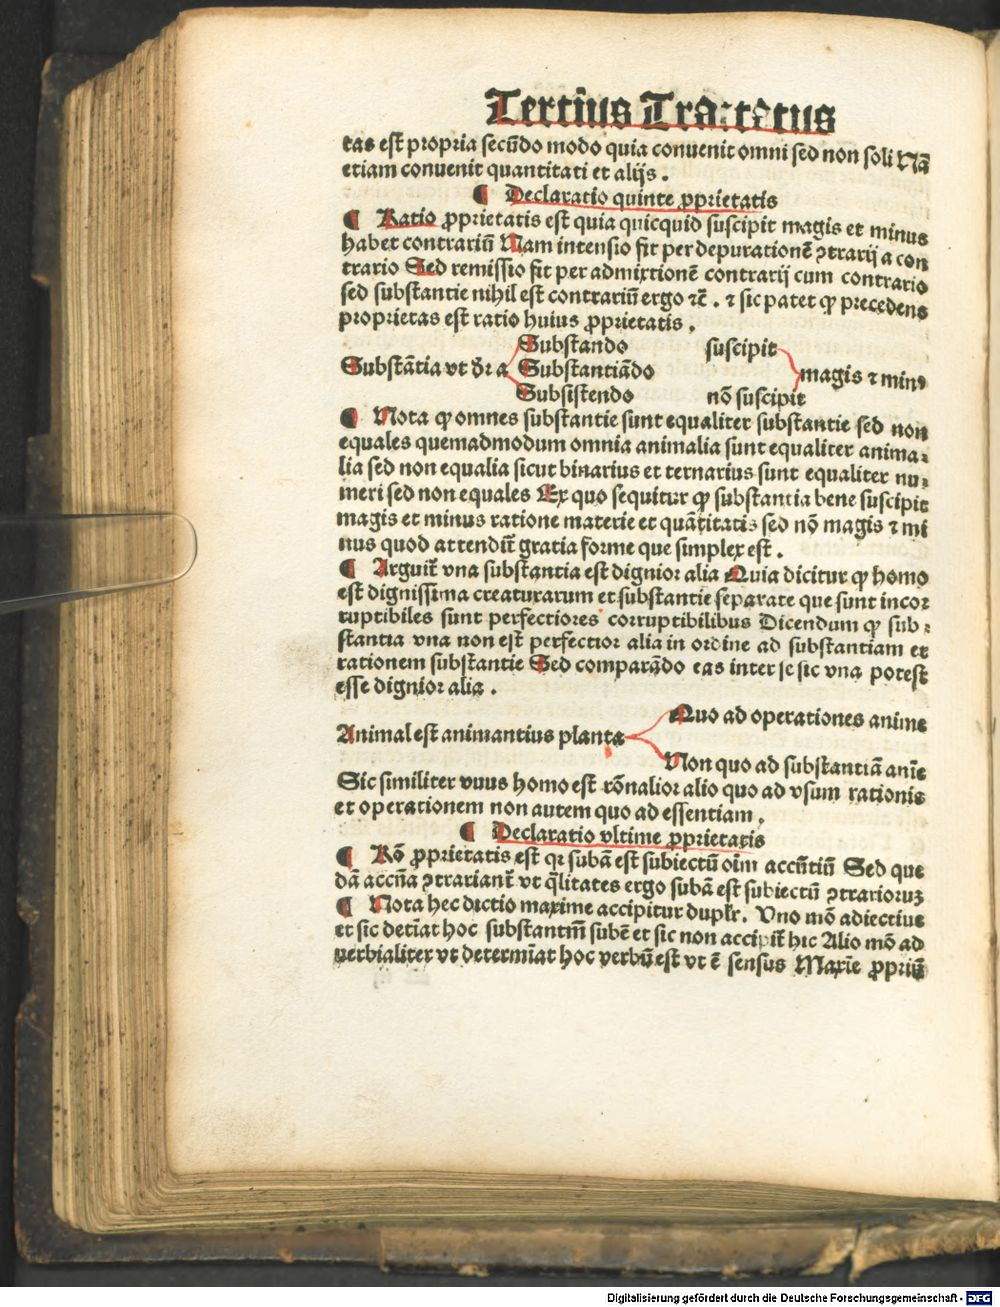 Tertius Tractatus
tas est propria secūdo modo quia conuenit omni sed non soli Nā
etiam conuenit quantitati et alijs .
¶ Declaratio quinte ꝓprietatis
¶ Ratio ꝓprietatis est quia quicquid suscipit magis et minus
habet contrariū Nam intensio fit per depurationē ꝯtrarij a con
trario Sed remissio fit per admixtionē contrarij cum contrario
sed substantie nihil est contrariū ergo ⁊c̄ . ⁊ sic patet ꝙ precedens
proprietas est ratio huius ꝓprietatis .
Substando suscipit
Substātia vt dr̄ a Substantiādo magis ⁊ minꝰ
Subsistendo nō suscipit
¶ Nota ꝙ omnes substantie sunt equaliter substantie sed non
equales quemadmodum omnia animalia sunt equaliter anima⸗
lia sed non equalia sicut binarius et ternarius sunt equaliter nu⸗
meri sed non equales Ex quo sequitur ꝙ substantia bene suscipit
magis et minus ratione materie et quātitatis sed nō magis ⁊ mi
nus quod attendit̄ gratia forme que simplex est .
¶ Arguit̄ vna substantia est dignior alia Quia dicitur ꝙ homo
est dignissima creaturarum et substantie separate que sunt incor
ruptibiles sunt perfectiores corruptibilibus Dicendum ꝙ sub⸗
stantia vna non est perfectior alia in ordine ad substantiam et
rationem substantie Sed comparādo eas inter se sic vna potest
esse dignior alia .
Quo ad operationes anime
Animal est animantius planta
Non quo ad substantiā anīe
Sic similiter vnus homo est rōnalior alio quo ad vsum rationis
et operationem non autem quo ad essentiam .
¶ Declaratio vltime ꝓprietatis
¶ Rō ꝓprietatis est qr subā est subiectū oīm accn̄tiū Sed que
dā accn̄a ꝯtrariant̄ vt q̄litates ergo subā est subiectū ꝯtrarioruꝫ
¶ Nota hec dictio maxime accipitur duplr̄. Vno mō adiectiue
et sic detīat hoc substantm̄ subē et sic non accipit̄ hic Alio mō ad
uerbialiter vt determīat hoc verbū est vt ē sensus Maxīe ꝓpriū
Digitalisierung gefördert durch die Deutsche Forschungsgemeinschaft - DFG